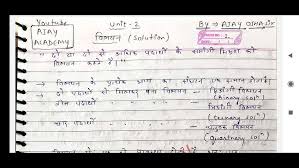 Youtube
AJAY
ACADEMY
Unit-2
By → AJAY
विलयन (Solution)
" दो या दो से अधिक पदार्थों के समांगी मिश्रण को
विलयन कहते हैं। "
→ विलयन के प्रत्येक भाग का संघटन एक समान होता
→ दो पदार्थों से मिलकर बना विलयन - द्विअंगी विलयन
(Binary solⁿ)
तीन पदार्थों - त्रिअंगी विलयन
(Ternary solⁿ)
चार पदार्थों - चतुरंगी विलयन
(Quaternary solⁿ)